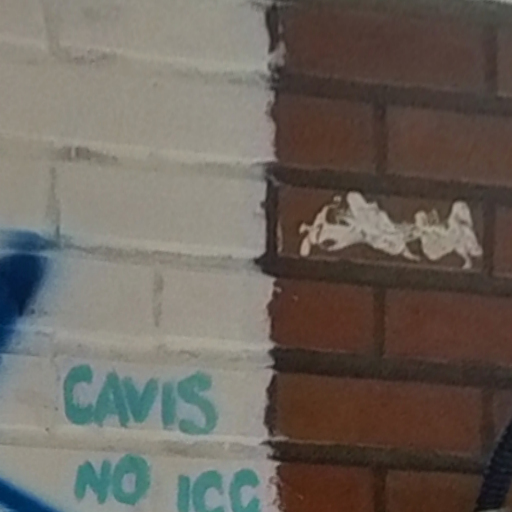 CAVIS
NO ICC